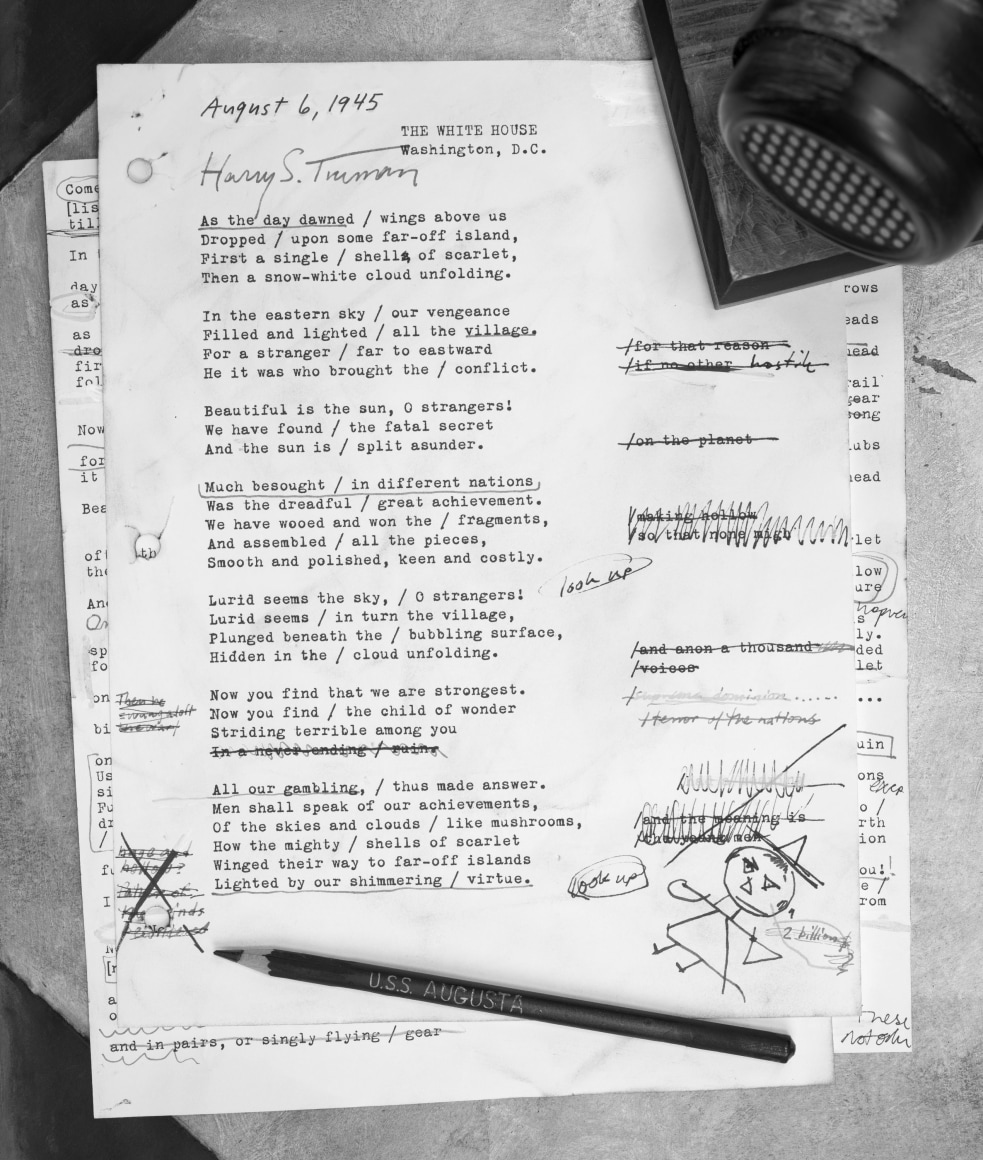 August 6, 1945
THE WHITE HOUSE
Washington, D.C.
Harry S. Truman
As the day dawned / wings above us
Dropped / upon some far-off island,
First a single / shell, of scarlet,
Then a snow-white cloud unfolding.
In the eastern sky / our vengeance
Filled and lighted / all the village.
For a stranger / far to eastward
He it was who brought the / conflict.
/for that reason
/if no other hostile
Beautiful is the sun, O strangers!
We have found / the fatal secret
And the sun is / split asunder.
/on the planet
Much besought / in different nations
Was the dreadful / great achievement.
We have wooed and won the / fragments,
And assembled / all the pieces,
Smooth and polished, keen and costly.
/making hollow
/so that none migh
look up
Lurid seems the sky, / O strangers!
Lurid seems / in turn the village,
Plunged beneath the / bubbling surface,
Hidden in the / cloud unfolding.
/and anon a thousand
/voices
Now you find that we are strongest.
Now you find / the child of wonder
Striding terrible among you
In a never ending / ruin,
dominion......
/terror of the nations
All our gambling, / thus made answer.
Men shall speak of our achievements,
Of the skies and clouds / like mushrooms,
How the mighty / shells of scarlet
Winged their way to far-off islands
Lighted by our shimmering / virtue.
/and the meaning is
look up
2 billion
U.S.S. AUGUSTA
Come
[lis
till
In
day
as
as
dro
fir
fol
Now
for
it
Bea
of
the
tb
And
sp
fo
on
bi
on
Us
si
Fu
dr
/
I
a
o
and in pairs, or singly flying / gear
rows
eads
head
rail
gear
song
ubs
head
let
low
ure
s
ly.
ded
let
...
uin
ons
o /
rth
ion
ou!
e /
rom